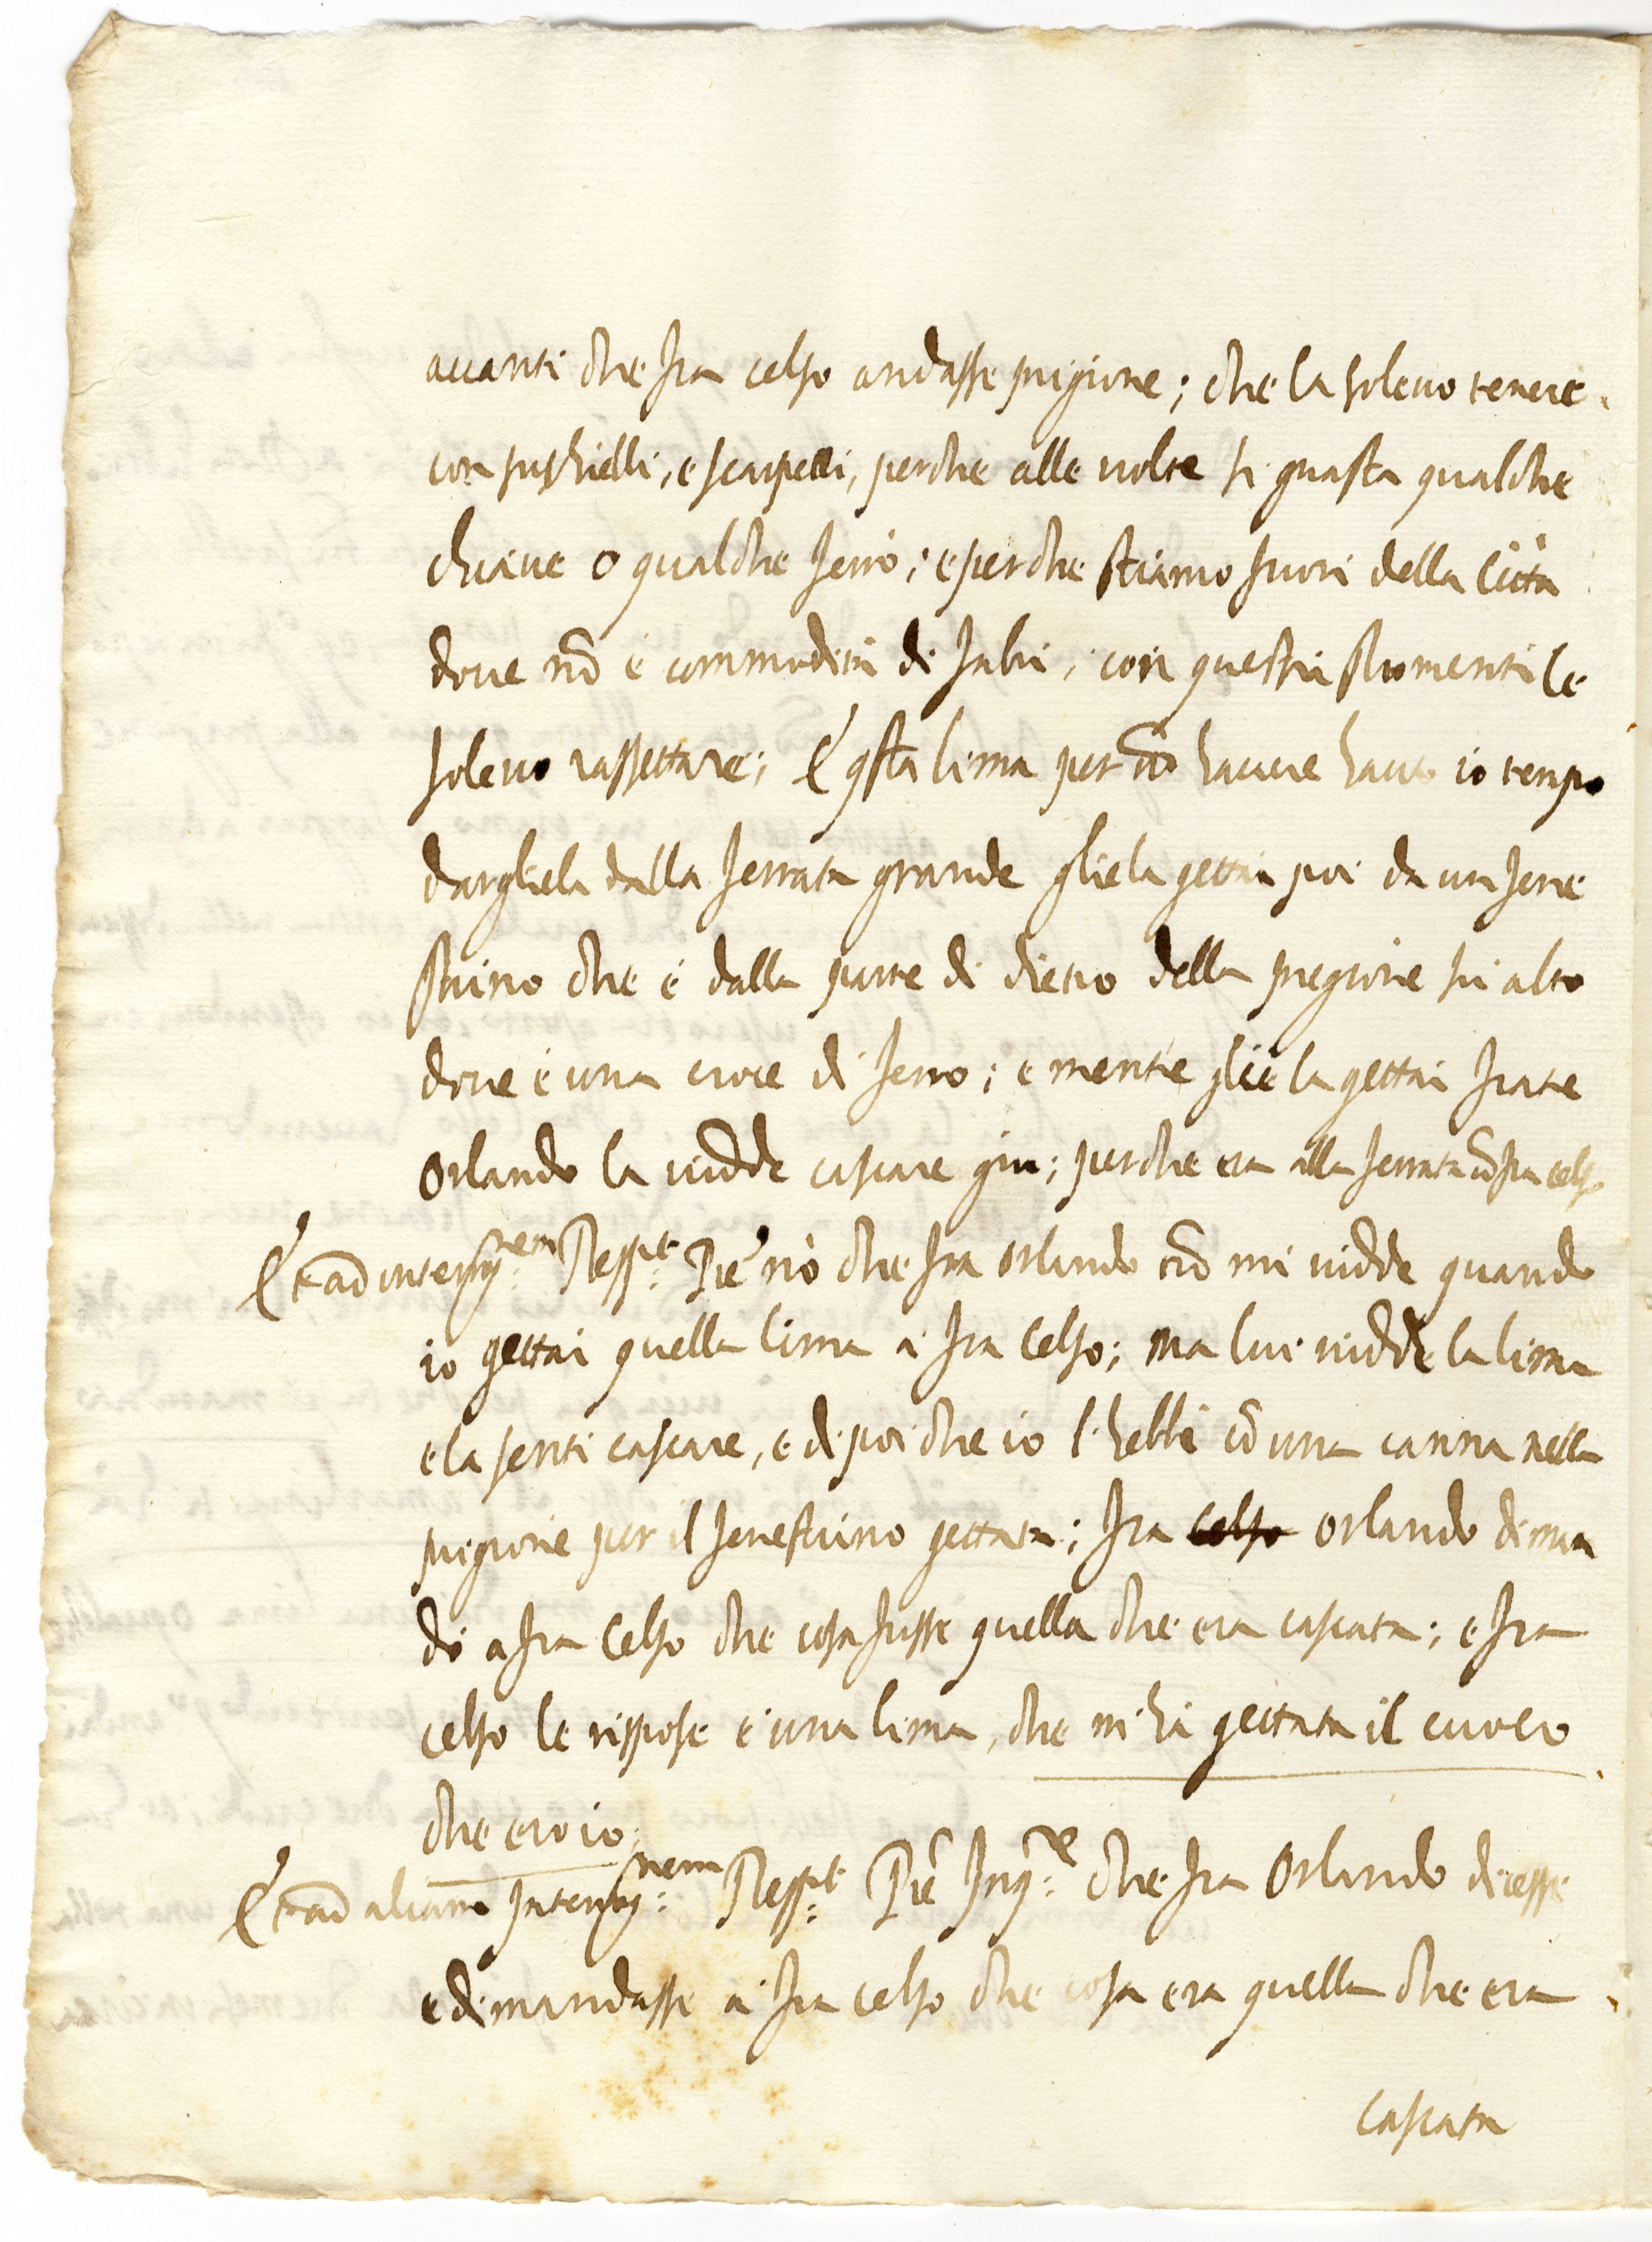 auanti che fra celso andasse prigione; che la soleuo tenere
con puschielli, e scarpelli, perche alle uolte si guasta qualche
chiaue o qualche ferro; e perche stiamo fuori della Città
doue nō è commodità di fabri, con questi stromenti le
soleuo rassettare; E qsta lima per nō hauere hauto io tempo
dargliela dalla ferrata grande gliela gettai poi da un fene
strino che è dalla parte di dietro della pregione in alto
doue è una croce di ferro; e mentre gliela gettai frate
Orlando la uidde cascare giu; perche era alla ferrata cō fra celso
Et ad interrog:nem Resp:t Pre nò che fra orlando nō mi uidde quando
io gettai quella lima à fra Celso; ma lui uidde la lima
e la senti cascare, e di poi che io l'hebbi cō una canna nella
prigione per il fenestrino gettata; fra celso orlando diman
dò a fra Celso che cosa fusse quella che era cascata; e fra
celso le rispose è una lima, che m'hà gettata il cuoco
che ero io.
Et ad aliam Interrog:nem Resp:t Pre Inq:re che fra Orlando dicesse
e dimandasse à fra celso che cosa era quella che era
cascata